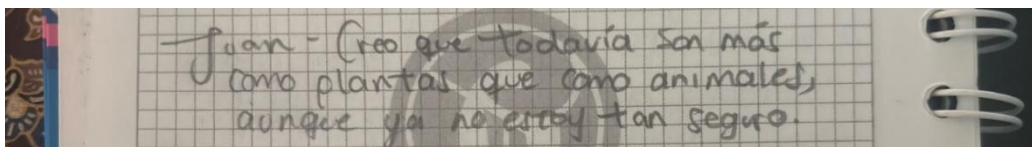 Juan - Creo que todavía son más
como plantas que como animales,
aunque ya no estoy tan seguro.